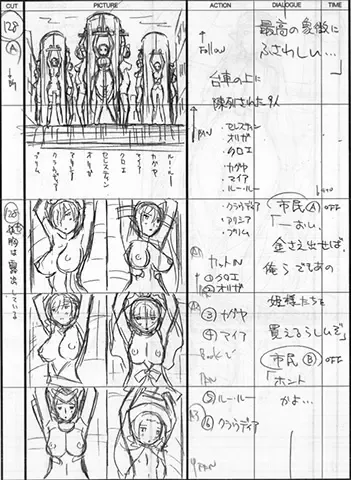 CUT
PICTURE
ACTION
DIALOGUE
TIME
28
A
Follow
台車の上に
陳列された9人
PAN
・セレスティン
・オリガ
・クロエ
・カグヤ
・マイア
・ルー・ルー
・クラウディア
・アリシア
・プリム
最高の象徴に
ふさわしい…
ルー・ルー
カグヤ
マイア
クロエ
セレスティン
オリガ
アリシア
クラウディア
プリム
胸は露出している
カットIN
① クロエ
② オリガ
③ カグヤ
④ マイア
Book
PAN
⑤ ルー・ルー
⑥ クラウディア
PAN
市民 A OFF
「おい、
金さえ出せば、
俺らでもあの
姫様たちを
買えるらしいぞ」
市民 B OFF
「ホント
かよ…